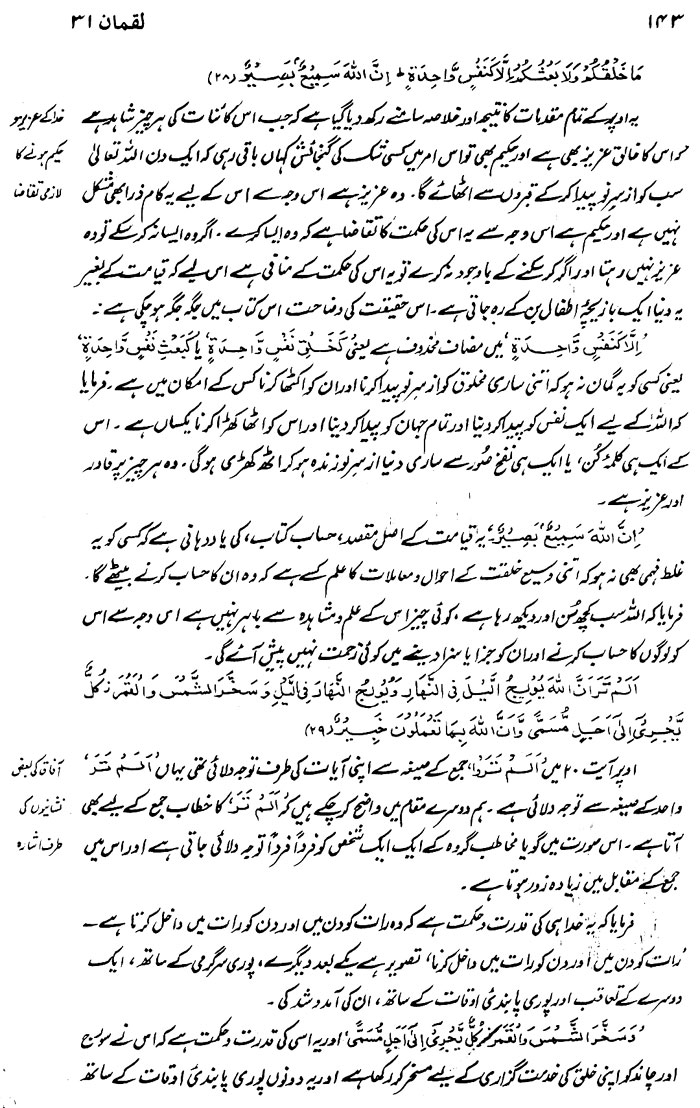 ۱۴۳
لقمان ۳۱
مَا خَلْقُكُمْ وَلَا بَعْثُكُمْ اِلَّا كَنَفْسٍ وَّاحِدَةٍ ۗ اِنَّ اللّٰهَ سَمِيْعٌۢ بَصِيْرٌ (۲۸)
خدا کے عزیز و
حکیم ہونے کا
لازمی تقاضا
یہ اوپر کے تمام مقدمات کا نتیجہ اور خلاصہ سامنے رکھ دیا گیا ہے کہ جب اس کائنات کی ہر چیز شاہد ہے
کہ اس کا خالق عزیز بھی ہے اور حکیم بھی تو اس امر میں کسی شک کی گنجائش کہاں باقی رہی کہ ایک دن اللہ تعالیٰ
سب کو ازسرِنو پیدا کر کے قبروں سے اٹھائے گا۔ وہ عزیز ہے اس وجہ سے اس کے لیے یہ کام ذرا بھی مشکل
نہیں ہے اور حکیم ہے اس وجہ سے یہ اس کی حکمت کا تقاضا ہے کہ وہ ایسا کرے۔ اگر وہ ایسا نہ کر سکے تو وہ
عزیز نہیں رہتا اور اگر کر سکنے کے باوجود نہ کرے تو یہ اس کی حکمت کے منافی ہے اس لیے کہ قیامت کے بغیر
یہ دنیا ایک بازیچۂ اطفال بن کے رہ جاتی ہے۔ اس حقیقت کی وضاحت اس کتاب میں جگہ جگہ ہو چکی ہے۔
'اِلَّا كَنَفْسٍ وَّاحِدَةٍ' میں مضاف محذوف ہے یعنی 'كَخَلْقِ نَفْسٍ وَّاحِدَةٍ' یا 'كَبَعْثِ نَفْسٍ وَّاحِدَةٍ'
یعنی کسی کو یہ گمان نہ ہو کہ اتنی ساری مخلوق کو ازسرِنو پیدا کرنا اور ان کو اکٹھا کرنا کس کے امکان میں ہے۔ فرمایا
کہ اللہ کے لیے ایک نفس کو پیدا کر دینا اور تمام جہان کو پیدا کر دینا اور اس کو اٹھا کھڑا کرنا یکساں ہے۔ اس
کے ایک ہی کلمۂ کُن، یا ایک ہی نفخِ صور سے ساری دنیا ازسرِنو زندہ ہو کر اٹھ کھڑی ہوگی۔ وہ ہر چیز پر قادر
اور عزیز ہے۔
'اِنَّ اللّٰهَ سَمِيْعٌۢ بَصِيْرٌ' یہ قیامت کے اصل مقصد، حساب کتاب، کی یاددہانی ہے کہ کسی کو یہ
غلط فہمی بھی نہ ہو کہ اتنی وسیع خلقت کے احوال و معاملات کا علم کسے ہے کہ وہ ان کا حساب کرنے بیٹھے گا۔
فرمایا کہ اللہ سب کچھ سُن اور دیکھ رہا ہے، کوئی چیز اس کے علم و مشاہدہ سے باہر نہیں ہے اس وجہ سے اس
کو لوگوں کا حساب کرنے اور ان کو جزا یا سزا دینے میں کوئی زحمت نہیں پیش آئے گی۔
اَلَمْ تَرَ اَنَّ اللّٰهَ يُوْلِجُ الَّيْلَ فِى النَّهَارِ وَيُوْلِجُ النَّهَارَ فِى الَّيْلِ وَسَخَّرَ الشَّمْسَ وَالْقَمَرَ كُلٌّ
يَّجْرِىْٓ اِلٰٓى اَجَلٍ مُّسَمًّى وَّاَنَّ اللّٰهَ بِمَا تَعْمَلُوْنَ خَبِيْرٌ (۲۹)
آفاق کی بعض
نشانیوں کی
طرف اشارہ
اوپر آیت ۲۰ میں 'اَلَمْ تَرَوْا' جمع کے صیغہ سے اپنی آیات کی طرف توجہ دلائی تھی یہاں 'اَلَمْ تَرَ'
واحد کے صیغہ سے توجہ دلائی ہے۔ ہم دوسرے مقام میں واضح کر چکے ہیں کہ 'اَلَمْ تَرَ' کا خطاب جمع کے لیے بھی
آتا ہے۔ اس صورت میں گویا مخاطب گروہ کے ایک ایک شخص کو فرداً فرداً توجہ دلائی جاتی ہے اور اس میں
جمع کے مقابل میں زیادہ زور ہوتا ہے۔
فرمایا کہ یہ خدا ہی کی قدرت و حکمت ہے کہ وہ رات کو دن میں اور دن کو رات میں داخل کرتا ہے۔
'رات کو دن میں اور دن کو رات میں داخل کرنا' تصویر ہے یکے بعد دیگرے، پوری سرگرمی کے ساتھ، ایک
دوسرے کے تعاقب اور پوری پابندئ اوقات کے ساتھ، ان کی آمد و شد کی۔
'وَسَخَّرَ الشَّمْسَ وَالْقَمَرَ كُلٌّ يَّجْرِىْٓ اِلٰٓى اَجَلٍ مُّسَمًّى' اور یہ اسی کی قدرت و حکمت ہے کہ اس نے سورج
اور چاند کو اپنی خلق کی خدمت گزاری کے لیے مسخر کر رکھا ہے اور یہ دونوں پوری پابندئ اوقات کے ساتھ